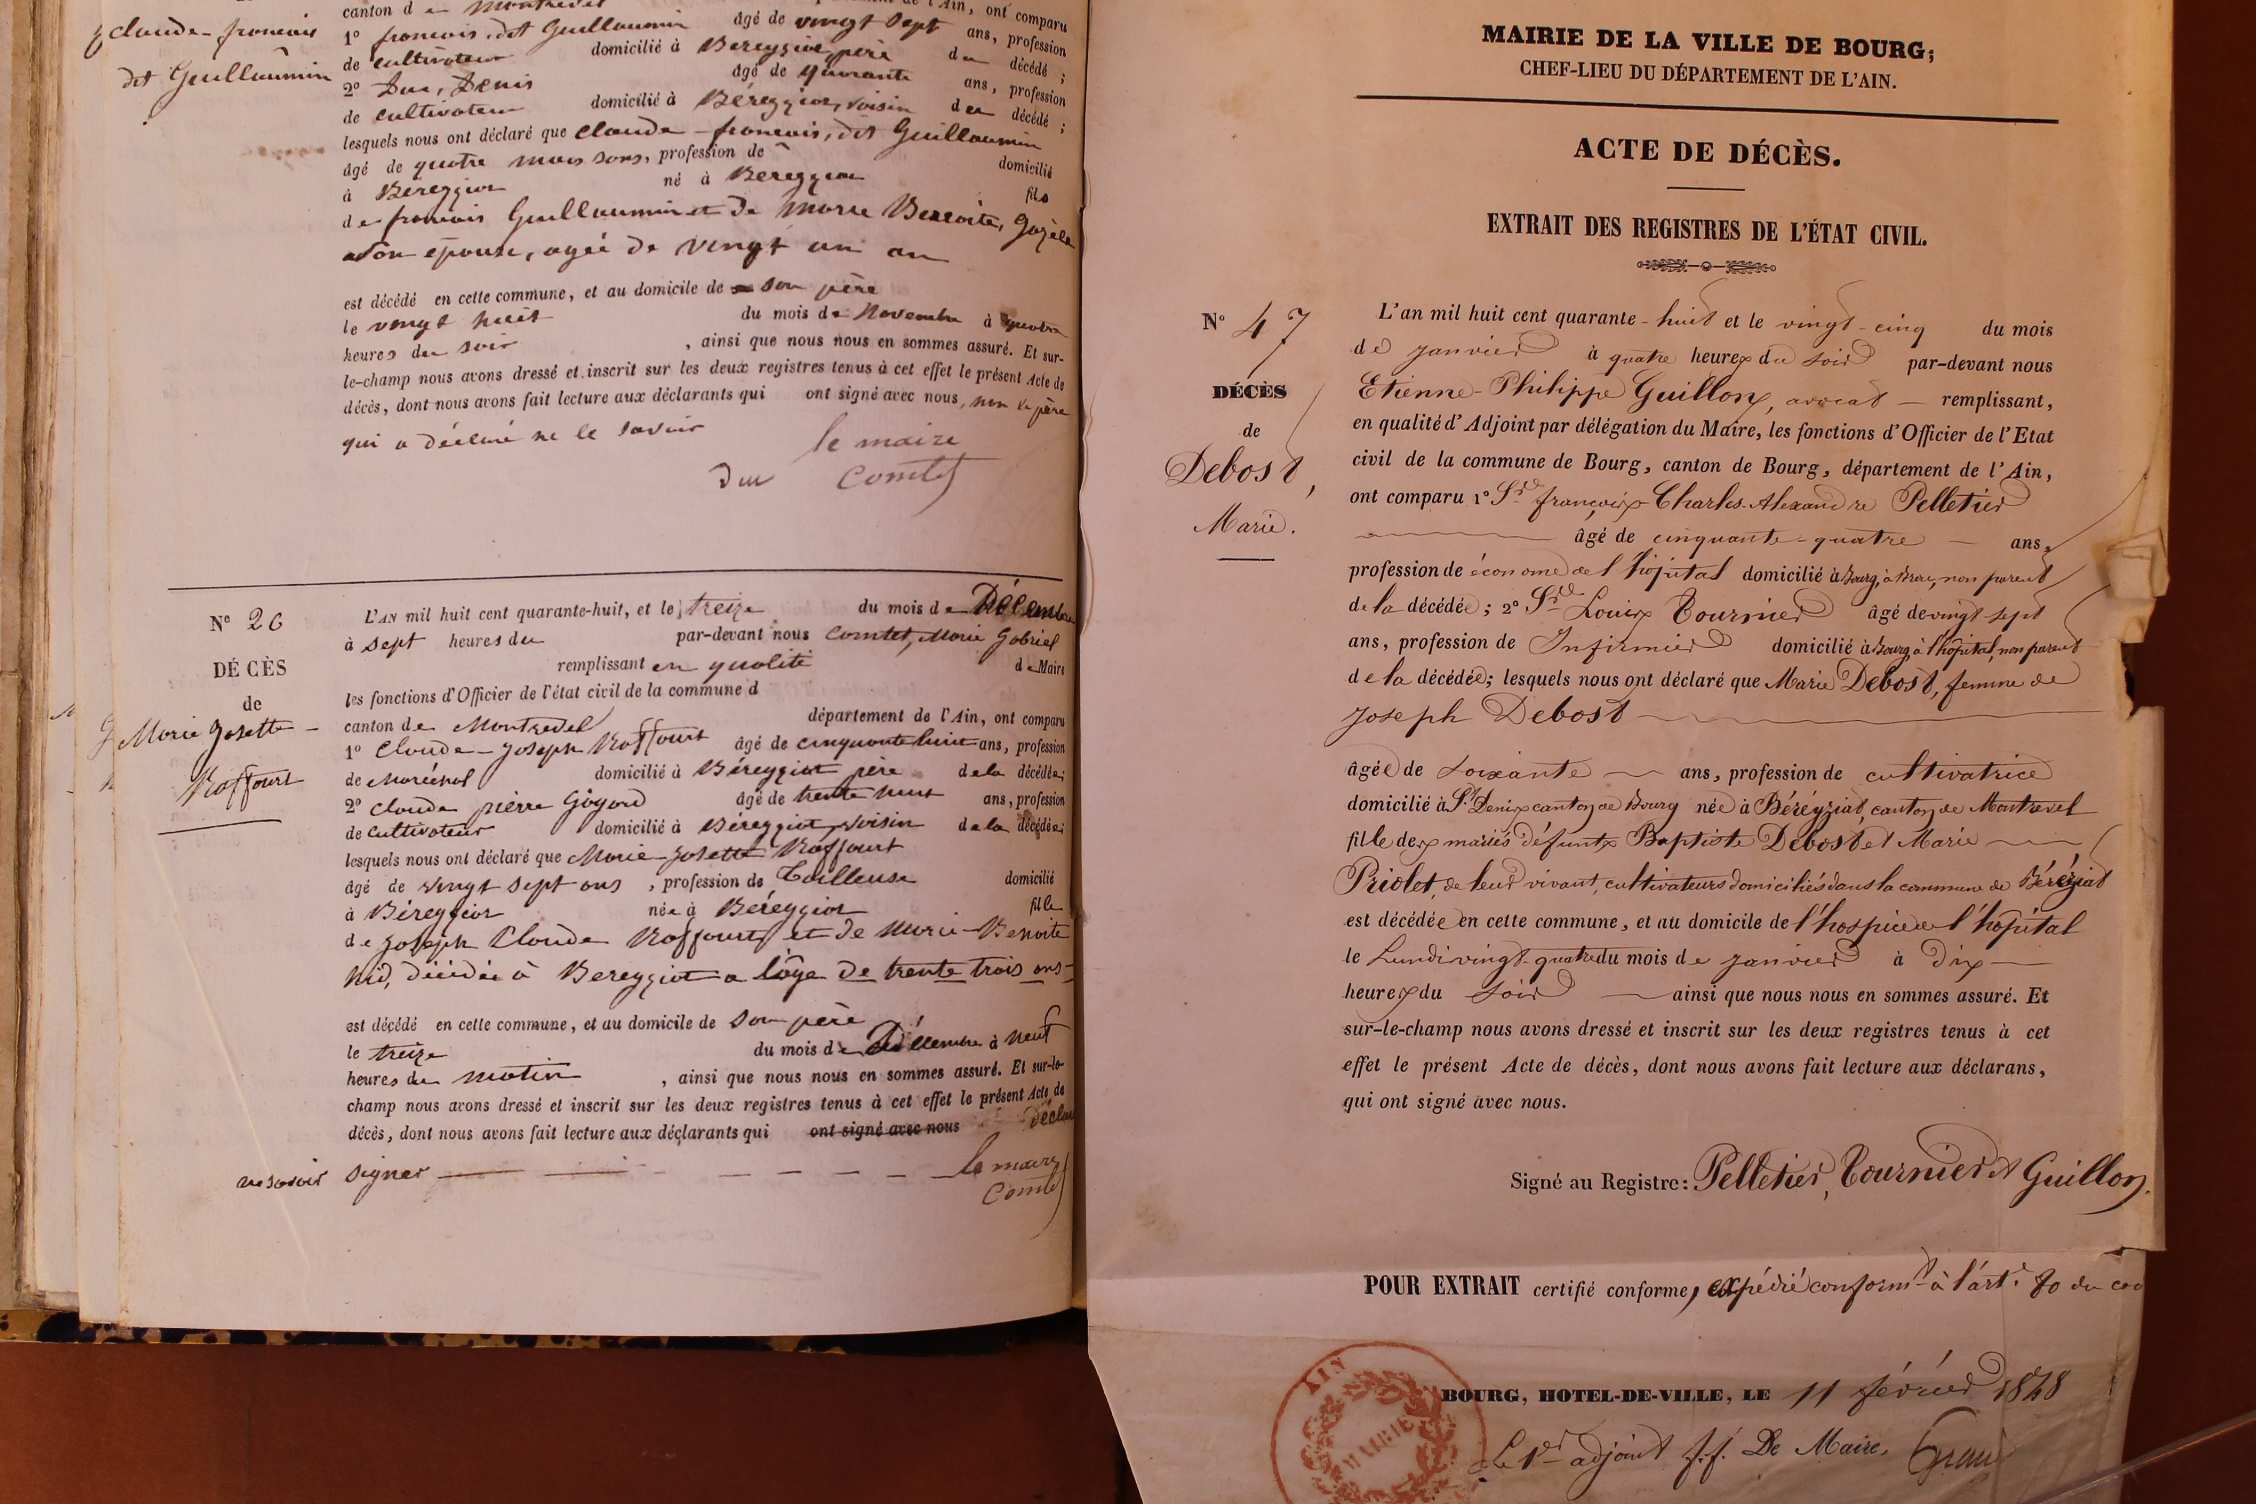 canton de Montrevel de l'Ain, ont comparu
Claude-francois
dit Guillaumin
1° francois, dit Guillaumin âgé de vingt sept ans, profession
de cultivateur domicilié à Béreyziat, père du décédé ;
2° Duc, Denis âgé de quarante ans, profession
de cultivateur domicilié à Béreyziat, voisin du décédé ;
lesquels nous ont déclaré que Claude-francois, dit Guillaumin
âgé de quatre mois , profession de domicilié
à Béreyziat né à Béreyziat fils
de francois Guillaumin et de Marie Benoite,
son épouse, agée de vingt un an
est décédé en cette commune, et au domicile de son père
le vingt huit du mois de Novembre à quatre
heures du soir , ainsi que nous nous en sommes assuré. Et sur-
le-champ nous avons dressé et inscrit sur les deux registres tenus à cet effet le présent Acte de
décès, dont nous avons fait lecture aux déclarants qui ont signé avec nous, non le père
qui a déclaré ne le savoir
le maire
Duc Comtet
N° 26
DÉCÈS
de
Marie Josette
Roffourt
L'AN mil huit cent quarante-huit, et le treize du mois de Décembre
à sept heures du par-devant nous Comtet, Marie Gabriel
remplissant en qualité de Maire
les fonctions d'Officier de l'état civil de la commune d
canton de Montrevel département de l'Ain, ont comparu
1° Claude-Joseph Roffourt âgé de cinquante huit ans, profession
de Maréchal domicilié à Béreyziat père de la décédée;
2° Claude pierre Gogard âgé de trente ans, profession
de cultivateur domicilié à Béreyziat, voisin de la décédée;
lesquels nous ont déclaré que Marie-Josette Roffourt
âgé de vingt sept ans , profession de Tailleuse domicilié
à Béreyziat née à Béreyziat fille
de Joseph Claude Roffourt et de Marie-Benoite
Nid, décédée à Béreyziat a l'âge de trente trois ans
est décédé en cette commune, et au domicile de son père
le treize du mois de Décembre à neuf
heures du matin , ainsi que nous nous en sommes assuré. Et sur-le-
champ nous avons dressé et inscrit sur les deux registres tenus à cet effet le présent Acte de
décès, dont nous avons fait lecture aux déclarants qui ont signé avec nous
ne savoir signer
le maire
Comtet
MAIRIE DE LA VILLE DE BOURG;
CHEF-LIEU DU DÉPARTEMENT DE L'AIN.
ACTE DE DÉCÈS.
EXTRAIT DES REGISTRES DE L'ÉTAT CIVIL.
N° 47
DÉCÈS
de
Debost,
Marie.
L'an mil huit cent quarante-huit et le vingt-cinq du mois
de janvier à quatre heures du soir par-devant nous
Etienne-Philippe Guillon, avocat — remplissant,
en qualité d'Adjoint par délégation du Maire, les fonctions d'Officier de l'Etat
civil de la commune de Bourg, canton de Bourg, département de l'Ain,
ont comparu 1° Sr. françois-Charles-Alexandre Pelletier
âgé de cinquante-quatre — ans,
profession de économe de l'hôpital domicilié à Bourg, à Brou, non parent
de la décédée; 2° Sr. Louis Tournier âgé de vingt-sept
ans, profession de Infirmier domicilié à Bourg à l'hôpital, non parent
de la décédée; lesquels nous ont déclaré que Marie Debost, femme de
joseph Debost
âgée de soixante — ans, profession de cultivatrice
domicilié à St. Denis canton de Bourg née à Béréyziat, canton de Montrevel
fille des mariés défunts Baptiste Debost et Marie
Priolet, de leur vivant, cultivateurs domiciliés dans la commune de Béréziat
est décédée en cette commune, et au domicile de l'hospice de l'hôpital
le Lundi vingt-quatre du mois de janvier à dix
heures du soir — ainsi que nous nous en sommes assuré. Et
sur-le-champ nous avons dressé et inscrit sur les deux registres tenus à cet
effet le présent Acte de décès, dont nous avons fait lecture aux déclarans,
qui ont signé avec nous.
Signé au Registre: Pelletier, Tournier et Guillon.
POUR EXTRAIT certifié conforme, expédié conformt. à l'art. 80 du cod
BOURG, HOTEL-DE-VILLE, LE 11 février 1848
Le 1er adjoint f.f. De Maire,
AIN
MAIRIE